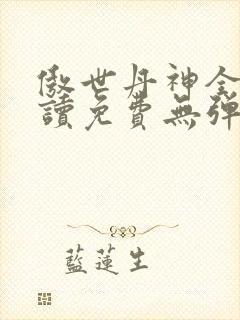 傲世丹神全
讀免費無彈
藍蓮生